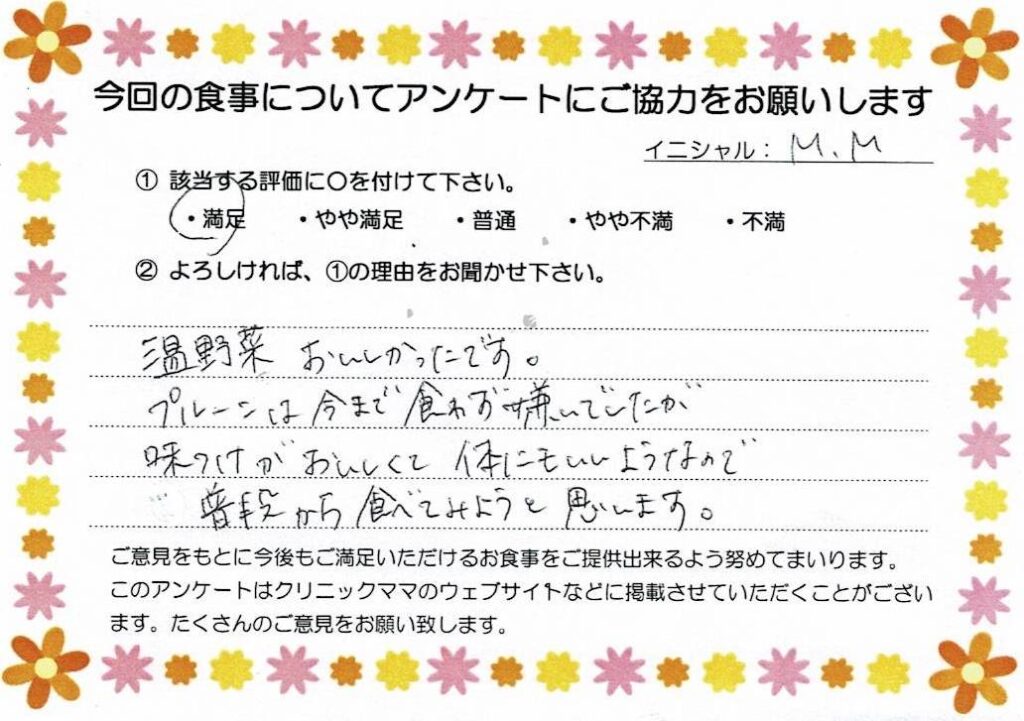 今回の食事についてアンケートにご協力をお願いします
イニシャル： M.M
① 該当する評価に〇を付けて下さい。
・満足 ・やや満足 ・普通 ・やや不満 ・不満
② よろしければ、①の理由をお聞かせ下さい。
温野菜 おいしかったです。
プルーンは今まで食わず嫌いでしたが
味つけがおいしくて 体にもいいようなので
普段から食べてみようと思います。
ご意見をもとに今後もご満足いただけるお食事をご提供出来るよう努めてまいります。
このアンケートはクリニックママのウェブサイトなどに掲載させていただくことがござい
ます。たくさんのご意見をお願い致します。